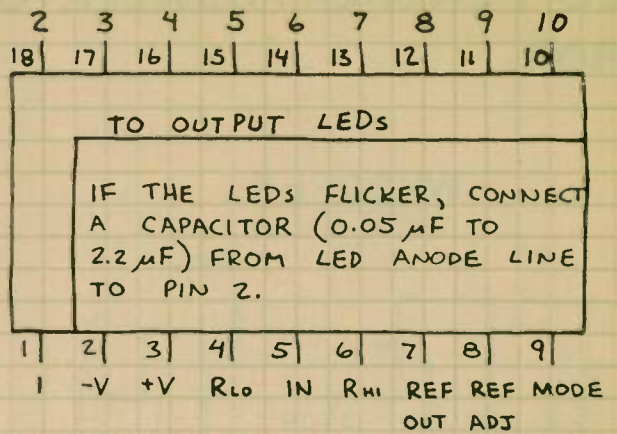 2 3 4 5 6 7 8 9 10
18 17 16 15 14 13 12 11 10
TO OUTPUT LEDs
IF THE LEDs FLICKER, CONNECT
A CAPACITOR (0.05 μF TO
2.2 μF) FROM LED ANODE LINE
TO PIN 2.
1 2 3 4 5 6 7 8 9
1 -V +V RLO IN RHI REF REF MODE
OUT ADJ